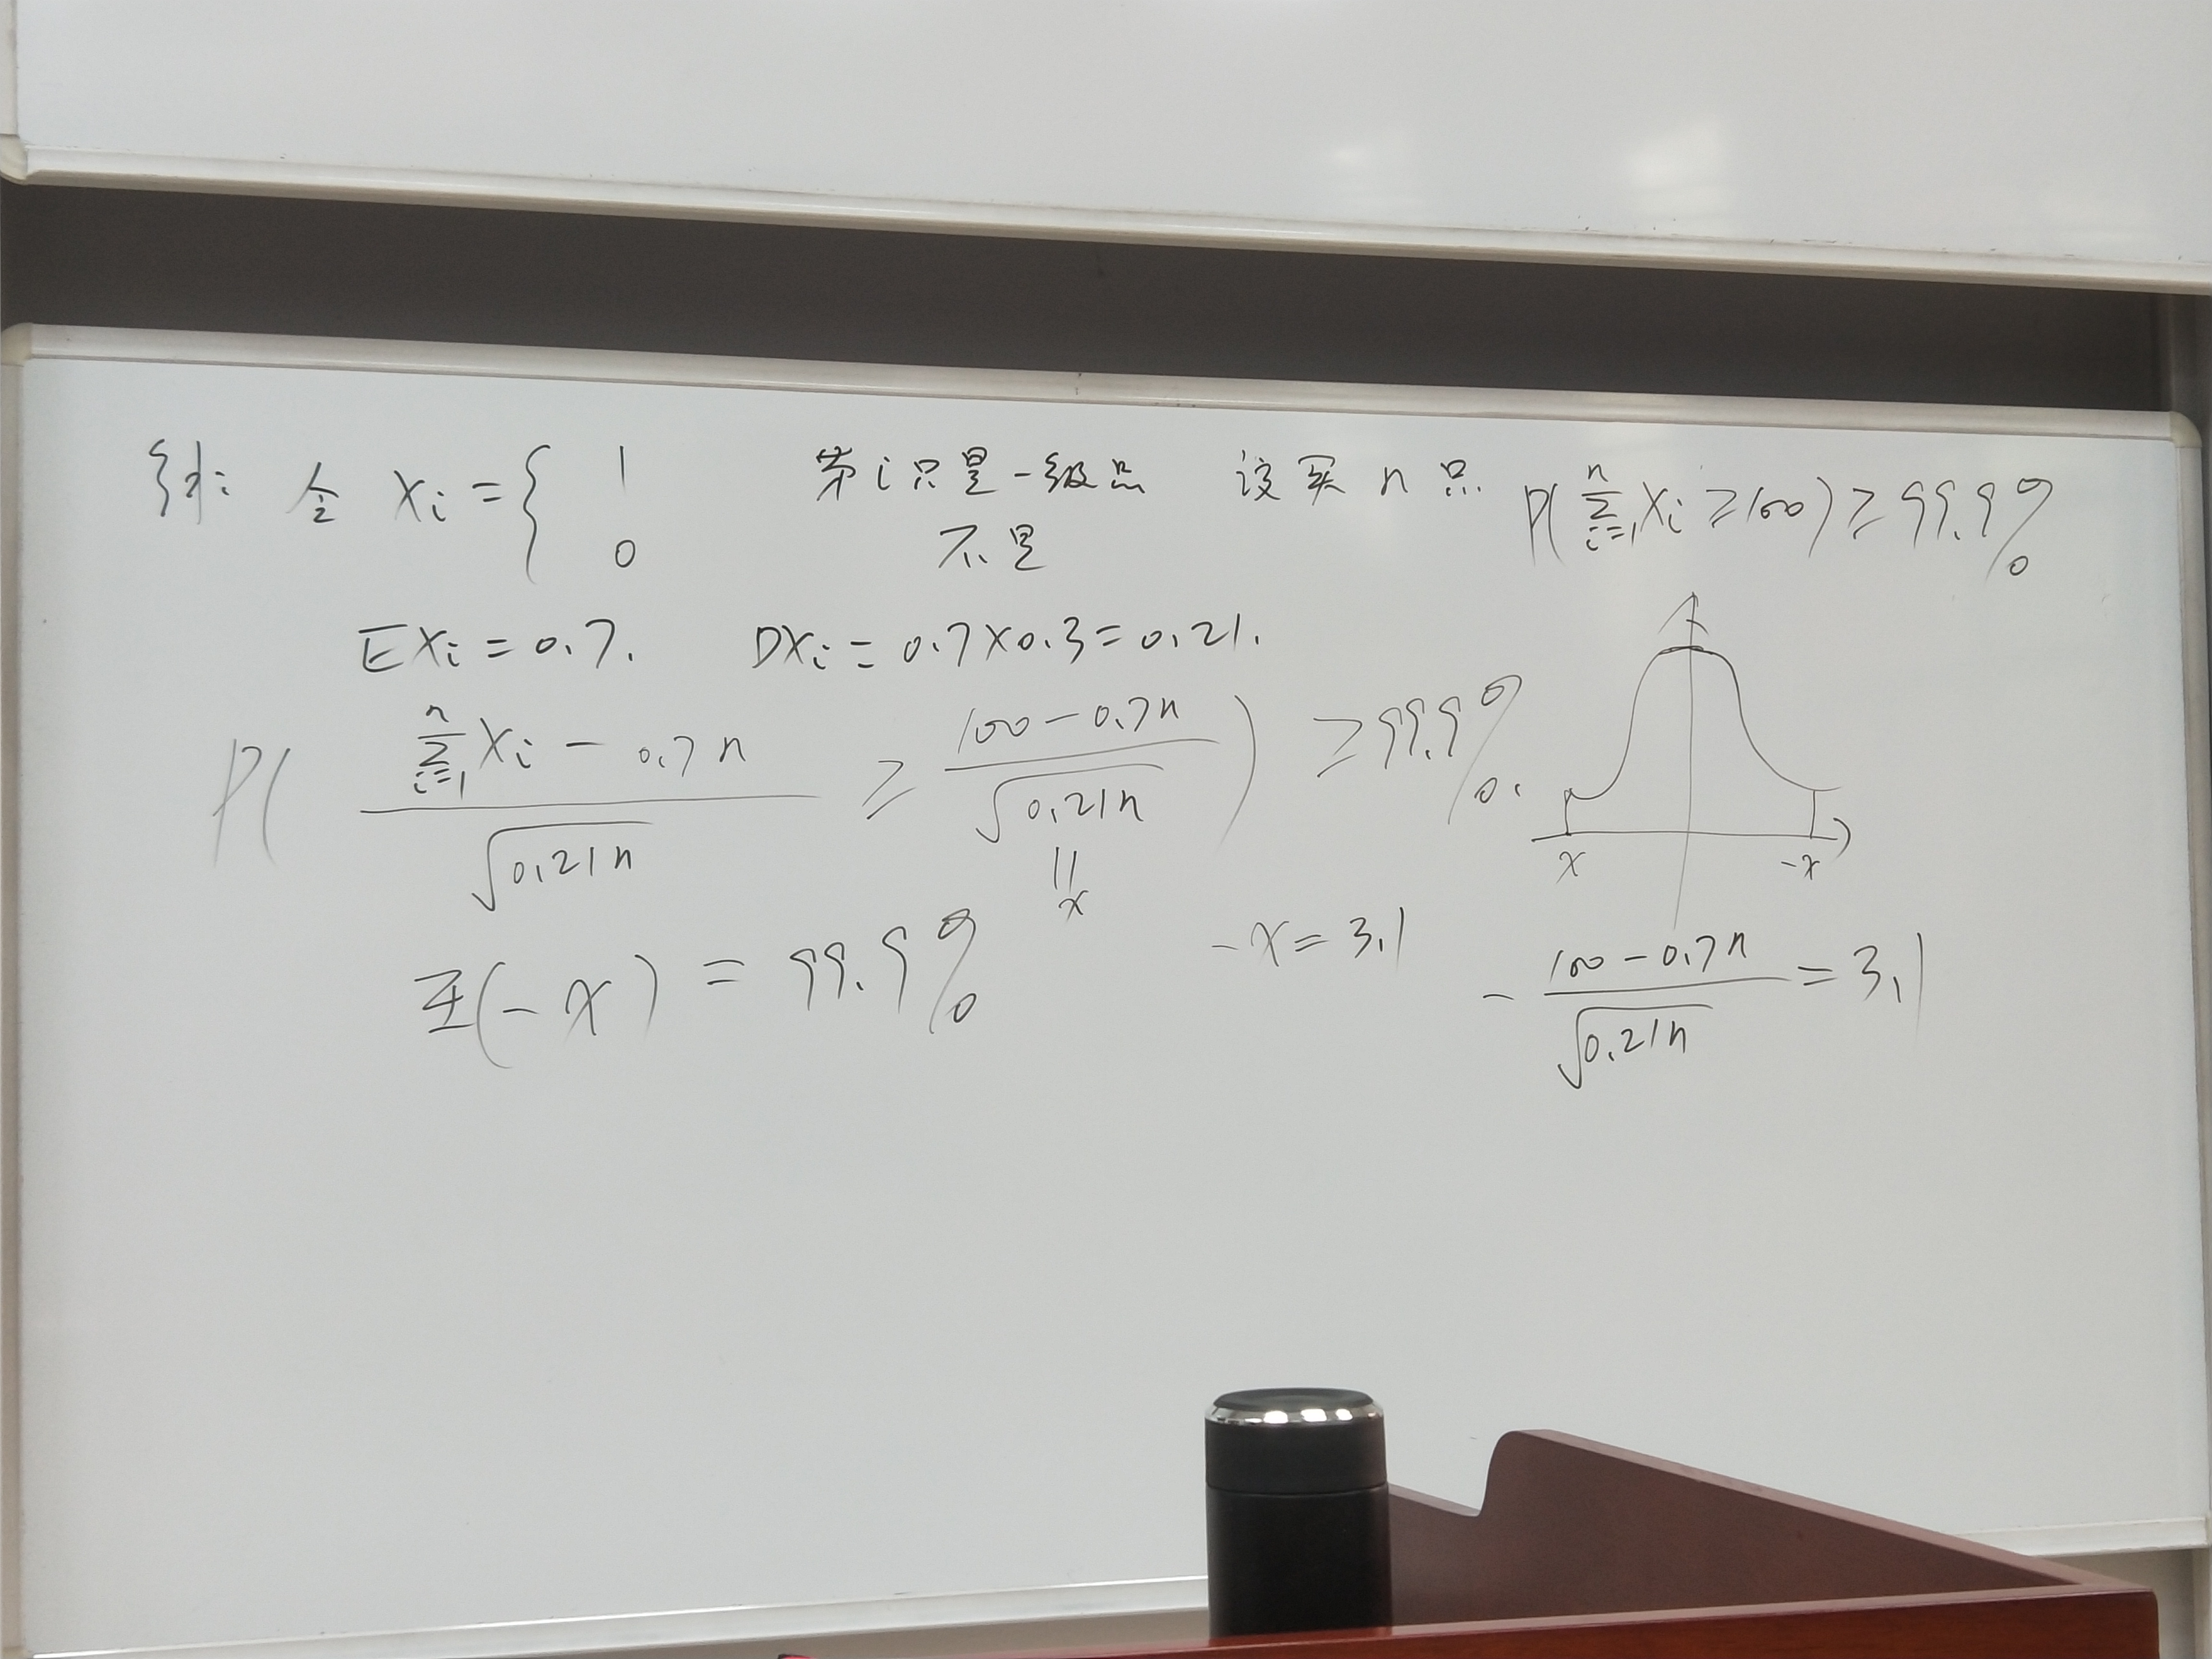 练: 令 Xi = { 1 第i只是一级品 设买n只 P( Σ_{i=1}^{n} Xi ≥ 100 ) ≥ 99.9%
0 不是
EXi = 0.7. DXi = 0.7×0.3 = 0.21.
P( (Σ_{i=1}^{n} Xi - 0.7n) / √(0.21n) ≥ (100 - 0.7n) / √(0.21n) ) ≥ 99.9%.
|| x
x -x
Φ(-x) = 99.9% -x = 3.1 - (100 - 0.7n) / √(0.21n) = 3.1